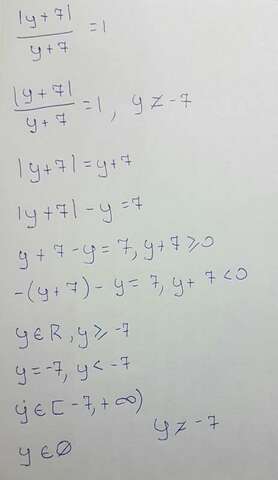 |y+7|
――― =1
y+7
|y+7|
――― =1, y≠-7
y+7
|y+7|=y+7
|y+7|-y=7
y+7-y=7, y+7≥0
-(y+7)-y=7, y+7<0
y∈R, y≥-7
y=-7, y<-7
y∈[-7,+∞)
y≠-7
y∈∅